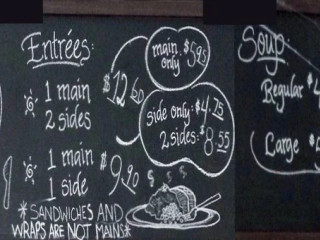 Entrées:
1 main
2 sides
$12.60
1 main
1 side
$9.20
*SANDWICHES AND
WRAPS ARE NOT MAINS*
main
only
$5.95
side only: $4.25
2 sides: $8.55
Soup:
Regular $4
Large $